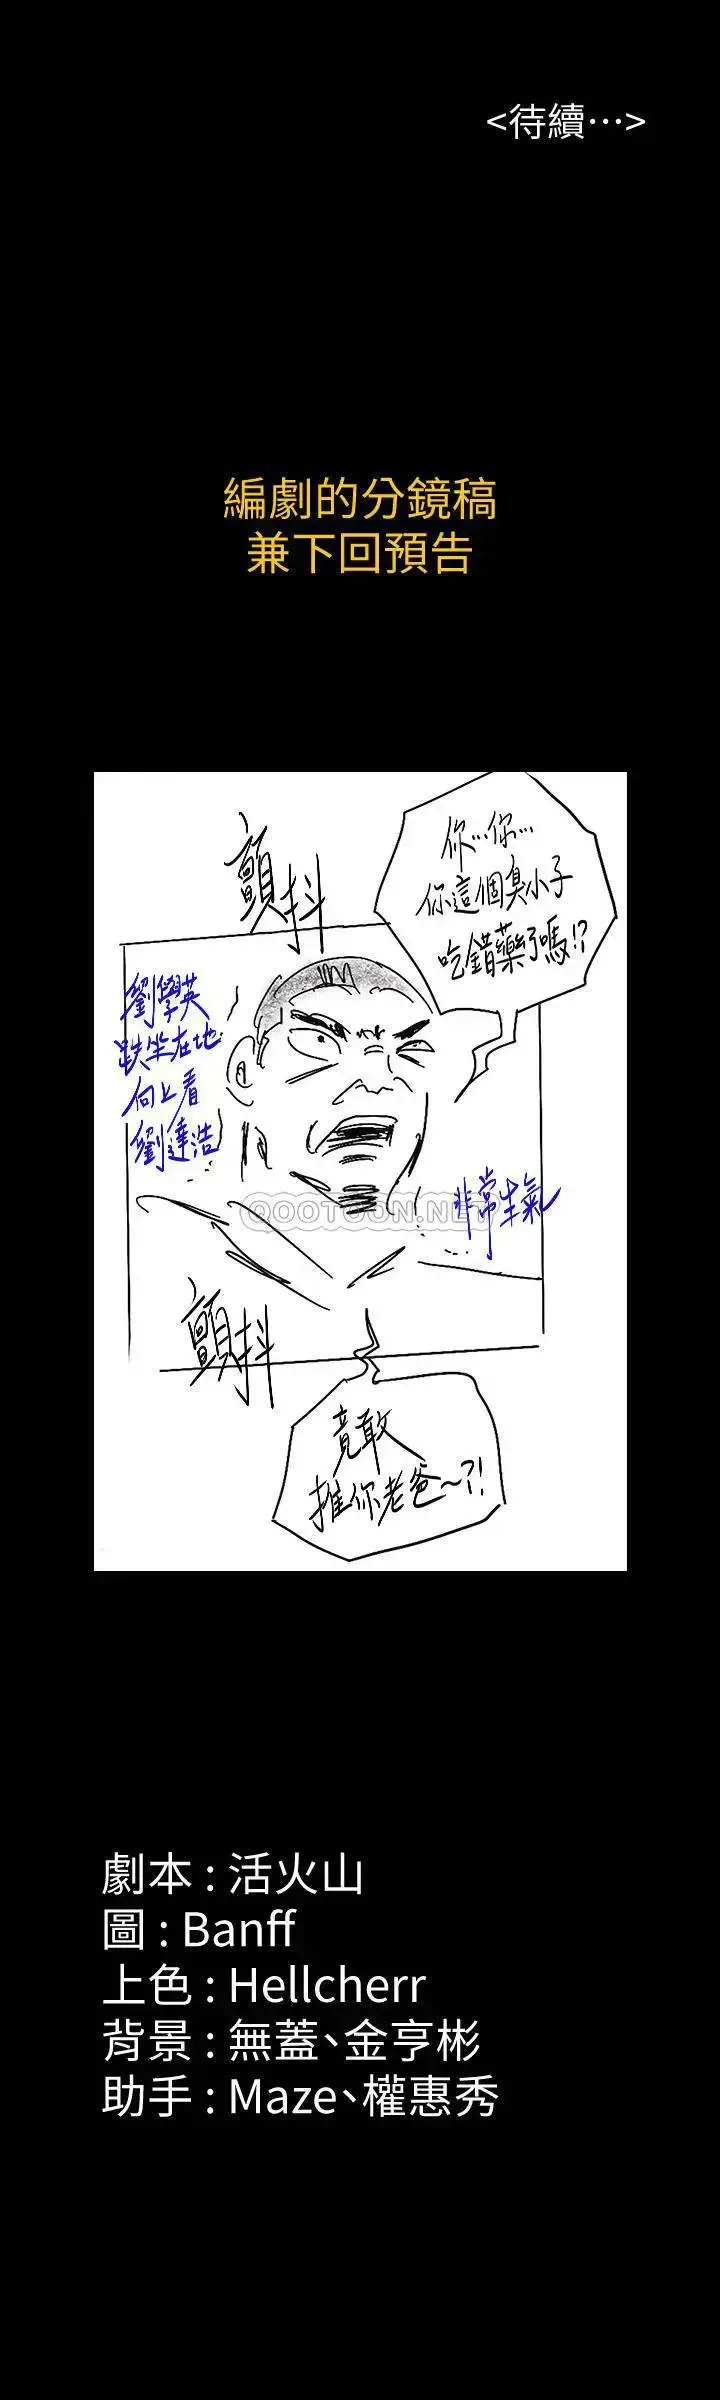 <待續…>
編劇的分鏡稿
兼下回預告
顫抖
你…你…
你這個臭小子
吃錯藥了嗎!?
劉學英
跌坐在地
向上看
劉達浩
非常生氣
QOOTOON.NET
顫抖
竟敢
推你老爸~?!
劇本 : 活火山
圖 : Banff
上色 : Hellcherr
背景 : 無蓋、金亨彬
助手 : Maze、權惠秀